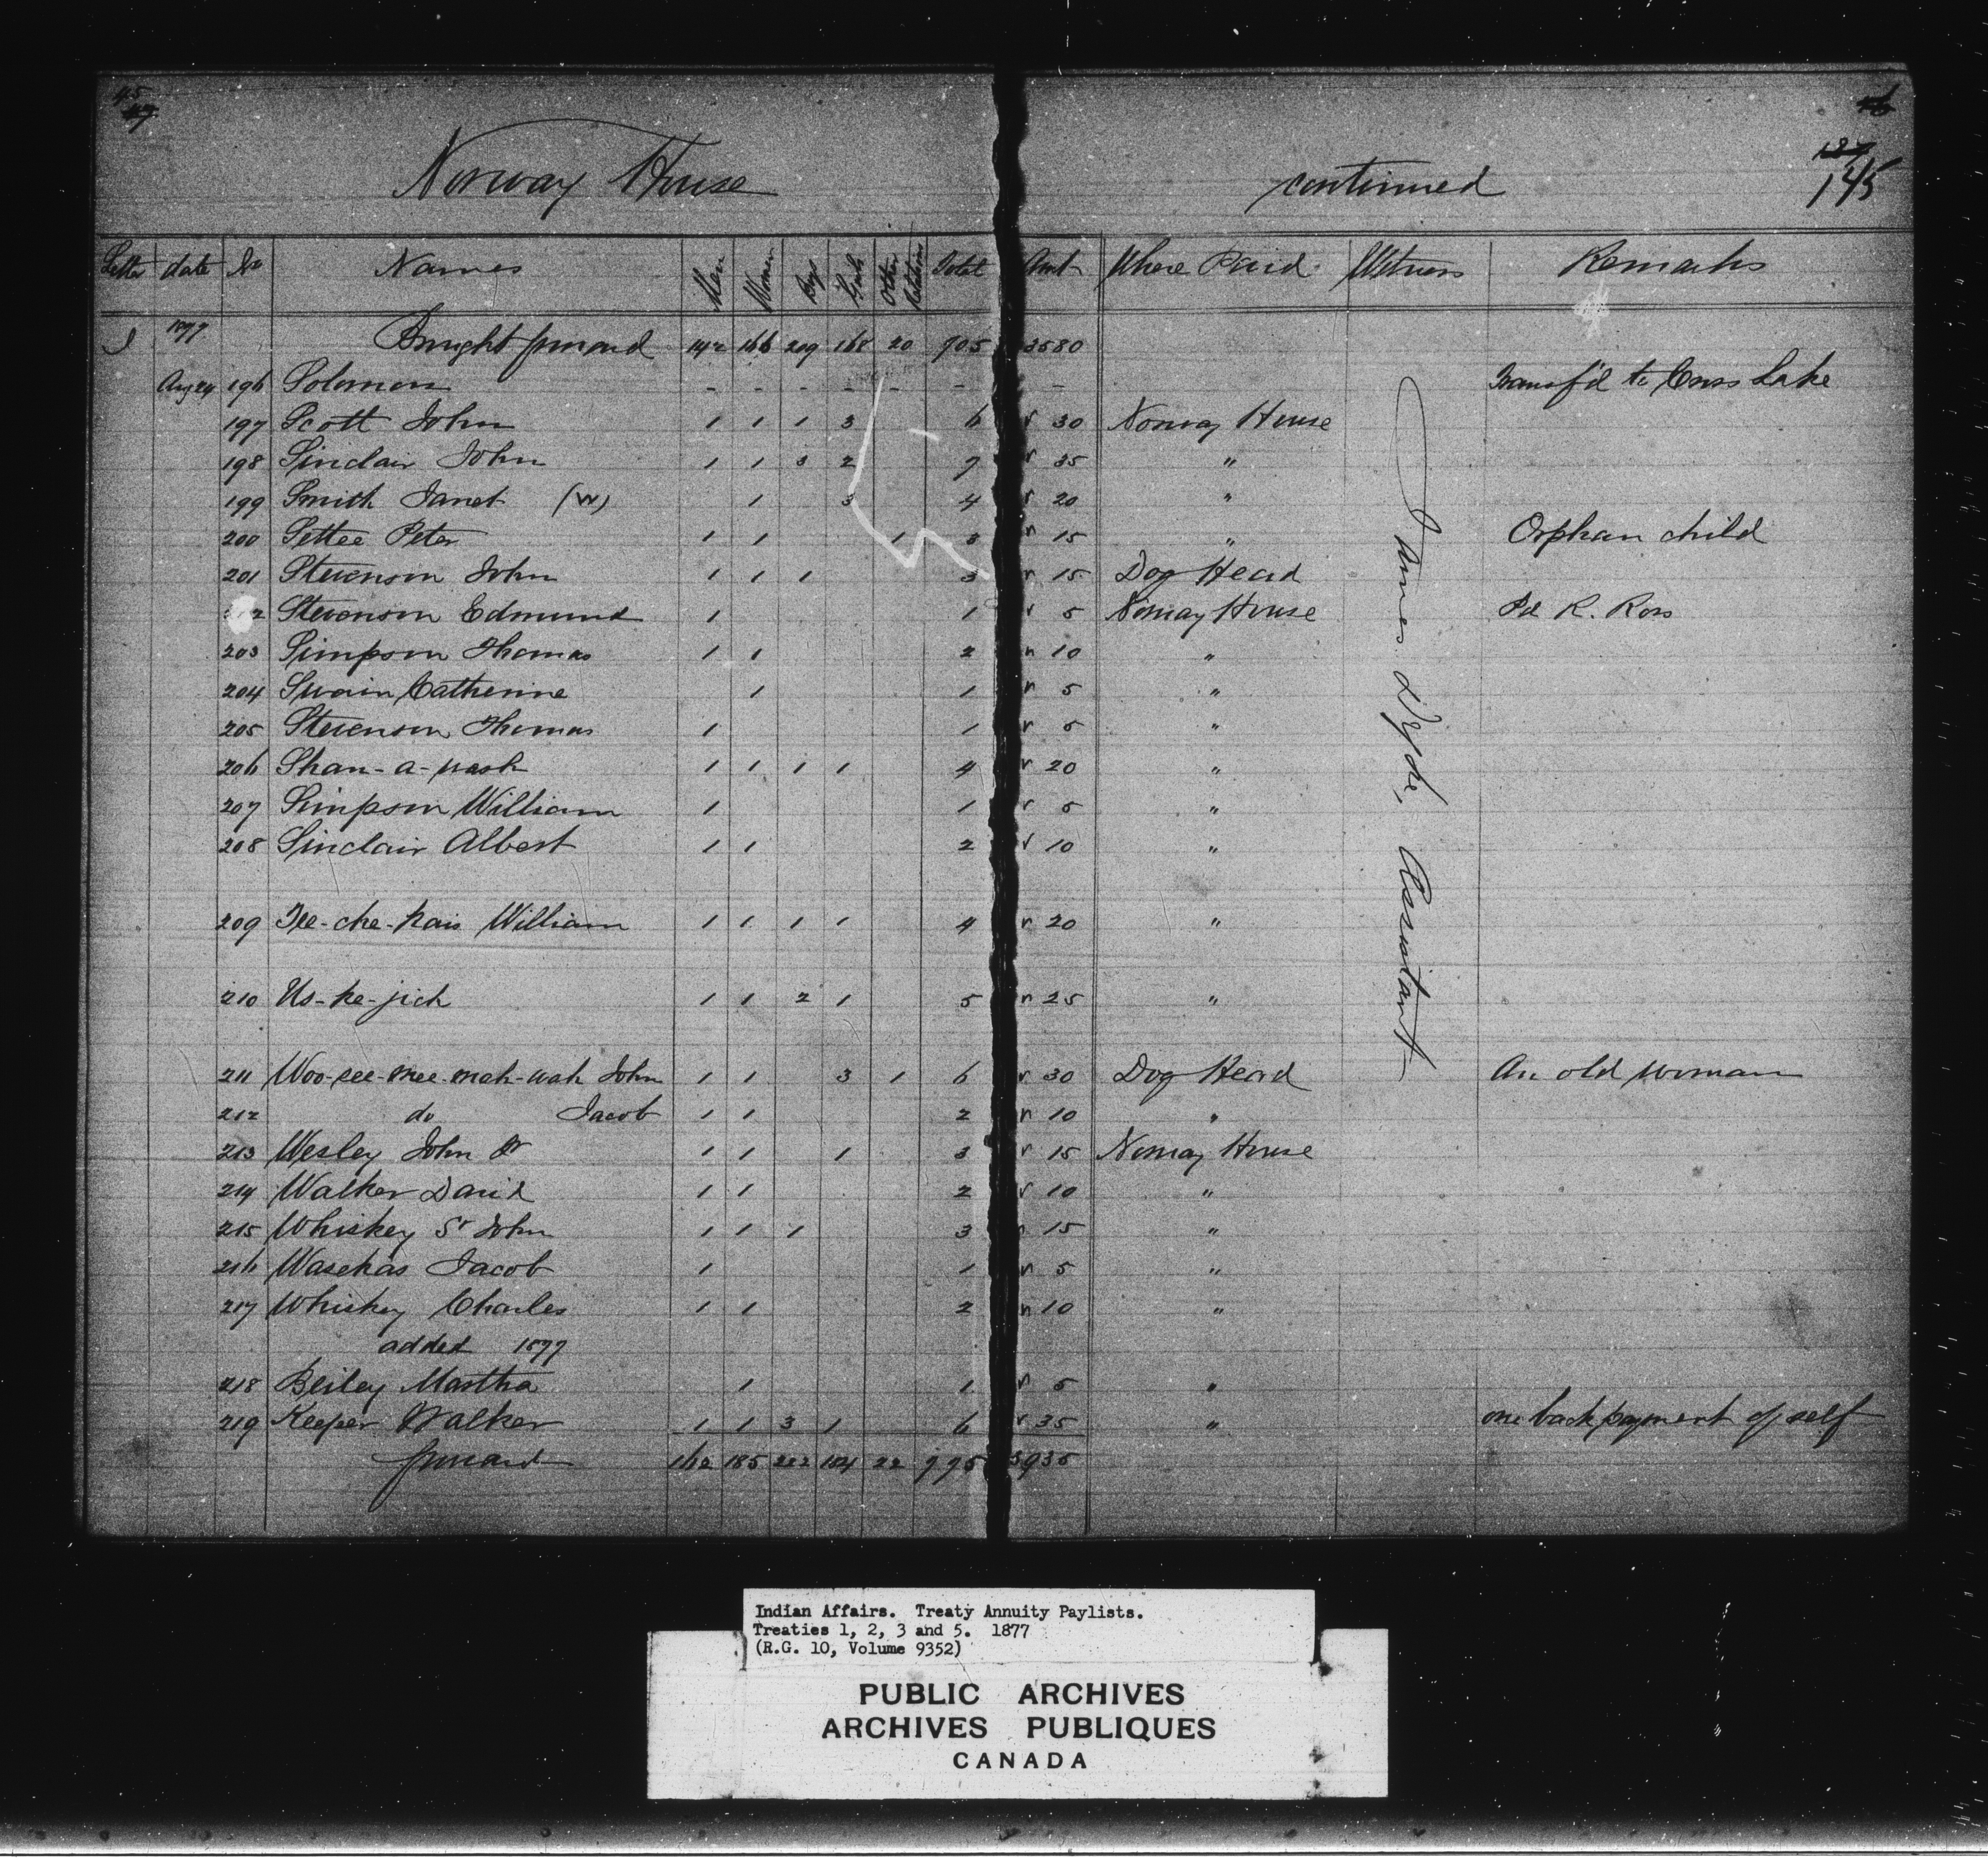 45
47
46
137
145
Norway House continued
Letter date No Names Men Women Boys Girls Other Relations Total Amt Where Paid Witness Remarks
S 1877 Brought forward 142 166 209 168 20 705 3580
Aug 24 196 Solomon - - - - - - - Transf'd to Cross Lake
197 Scott John 1 1 1 3 6 30 Norway House
198 Sinclair John 1 1 3 2 7 35 "
199 Smith Janet (W) 1 3 4 20 "
200 Settee Peter 1 1 1 3 15 " Orphan child
201 Stevenson John 1 1 1 3 15 Dog Head
2 Stevenson Edmund 1 1 5 Norway House Pd R. Ross
203 Simpson Thomas 1 1 2 10 "
204 Swain Catherine 1 1 5 "
205 Stevenson Thomas 1 1 5 "
206 Shan-a-wash 1 1 1 1 4 20 "
207 Simpson William 1 1 5 "
208 Sinclair Albert 1 1 2 10 "
209 Tee-che-kais William 1 1 1 1 4 20 "
210 Us-ke-jich 1 1 2 1 5 25 "
211 Woo-see-mee-mah-wah John 1 1 3 1 6 30 Dog Head An old woman
212 do Jacob 1 1 2 10 "
213 Wesley John Jr 1 1 1 3 15 Norway House
214 Walker David 1 1 2 10 "
215 Whiskey Sr John 1 1 1 3 15 "
216 Wasekas Jacob 1 1 5 "
217 Whiskey Charles 1 1 2 10 "
added 1877
218 Beiley Martha 1 1 5 "
219 Keeper Walker 1 1 3 1 6 35 " one back payment of self
forward 162 185 222 184 22 775 3935
James Assistant
Indian Affairs. Treaty Annuity Paylists.
Treaties 1, 2, 3 and 5. 1877
(R.G. 10, Volume 9352)
PUBLIC ARCHIVES
ARCHIVES PUBLIQUES
CANADA